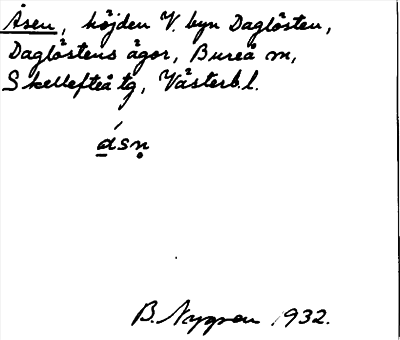 Åsen, höjden V. byn Daglösten,
Daglöstens ägor, Bureå m,
Skellefteå tg, Västerb.l.
ásn̥
B. Nygren 1932.